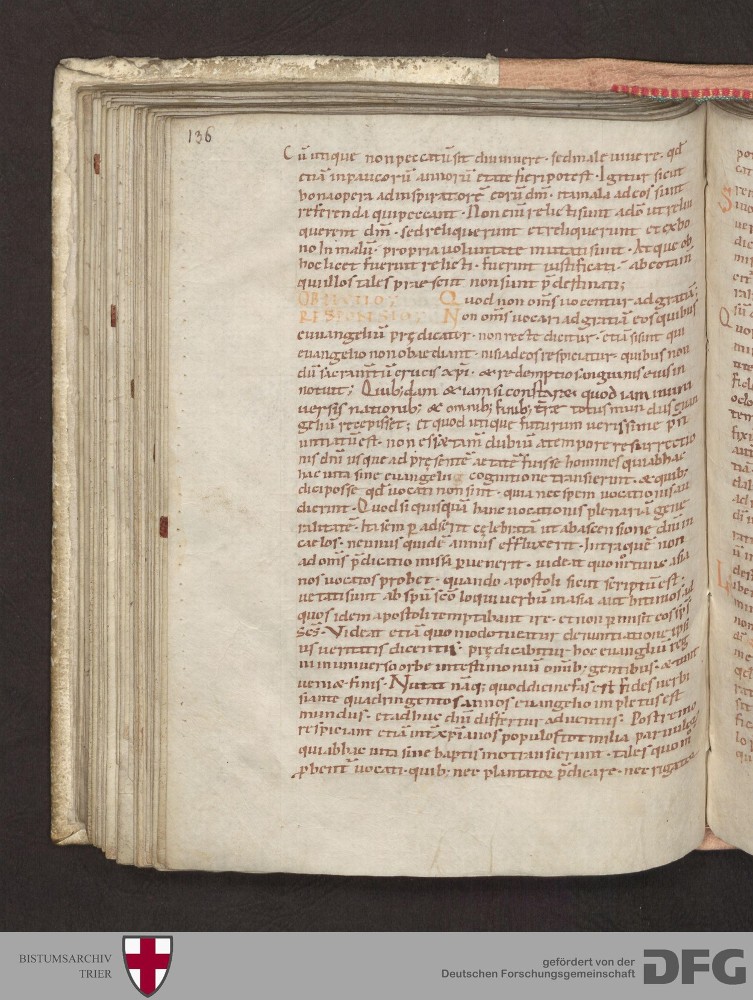 136
Cū utique non peccatū sit diu uiuere · sed male uiuere · qđ
etiā in paucorū annorū etate fieri potest · Igitur sicut
bona opera ad inspiratorē eorū dm̄ · ita mala ad eos sunt
referenda qui peccant · Non eni relicti sunt a dō ut relin
querent dm̄ · sed reliquerunt et relicti sunt et ex bo
no in malū · propria uoluntate mutati sunt · Atque ob
hoc licet fuerint renati · fuerint iustificati · ab eo tam̄
qui illos tales praesciit non sunt p̄destinati;
OBIECTIO; Quod non om̄s uocentur ad gratiā;
RESPONSIO; Non om̄s uocari ad gratiā eos quibus
euuangeliū prędicatur · non recte dicitur · etiā si sint qui
euangelio non obaediant · nisi ad eos respiciatur · quibus non
dū sacramtū crucis xp̄i · & redemptio sanguinis eius in
notuit; Quib;dam & iam si constaret quod iam in uni
uersis nationib; & omnib; finib; terrę totus mundus euuan
geliū recepisset; et quod utique futurum uerissime p̄n
untiatū est · non est tam̄ dubiū a tempore resurrectio
nis dn̄i usque ad pręsentē aetatē fuisse homines qui ab hac
hac uita sine euangelii cognitione transierunt · & quib;
dici posse qđ uocati non sint · quia nec spem uocationis au
dierint · Quod si quisquā hanc uocationis plenariā gene
ralitatē · ita sem p adserit celebratā ut ab ascensione dn̄i in
caelos · nemnus quidē annus effluxerit · Intra quē non
ad om̄s p̄dicatio missa puenerit · uideat quom̄ in asia
nos uocatos probet · quando apostoli sicut scriptū est ·
uetati sunt ab spū scō loqui uerbū in asia aut bithinos ad
quos idem apostoli temptabant ire · et non pmisit eos sps̄
sc̄s · Videat etiā quomodo tueatur denuntiatione ipsi
us ueritatis dicentis · prędicabitur hoc euanghiū reg
ni in uniuerso orbe in testimoniū omib; gentibus · & tunc
ueniæ finis · Nutat nāq; quod dici nefas est fides uerbi
si ante quadringentos annos euangelio impletus est
mundus · et adhuc dn̄i differtur aduentus · Postremo
respiciant etiā int xpianos populos tot milia paruuloꝝ
qui ab hac uita sine baptismo transierunt · tales quom̄
pbent uocati · quib; nec plantator p̄dicare · nec rigator
BISTUMSARCHIV
TRIER
gefördert von der
Deutschen Forschungsgemeinschaft
DFG